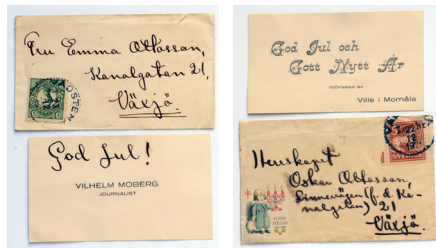 Fru Emma Ottosson,
Kanalgatan 21,
Växjö.
God Jul!
VILHELM MOBERG
JOURNALIST
God Jul och
Gott Nytt År
tillönskas av
Ville i Momåla
Herrskapet
Oskar Ottosson,
Linnévägen (f.d. Ka-
nalgatan) 21
Växjö.
SVERIGE
GOD
HELG